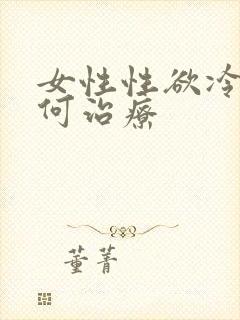 女性性欲冷
何治疗
董菁